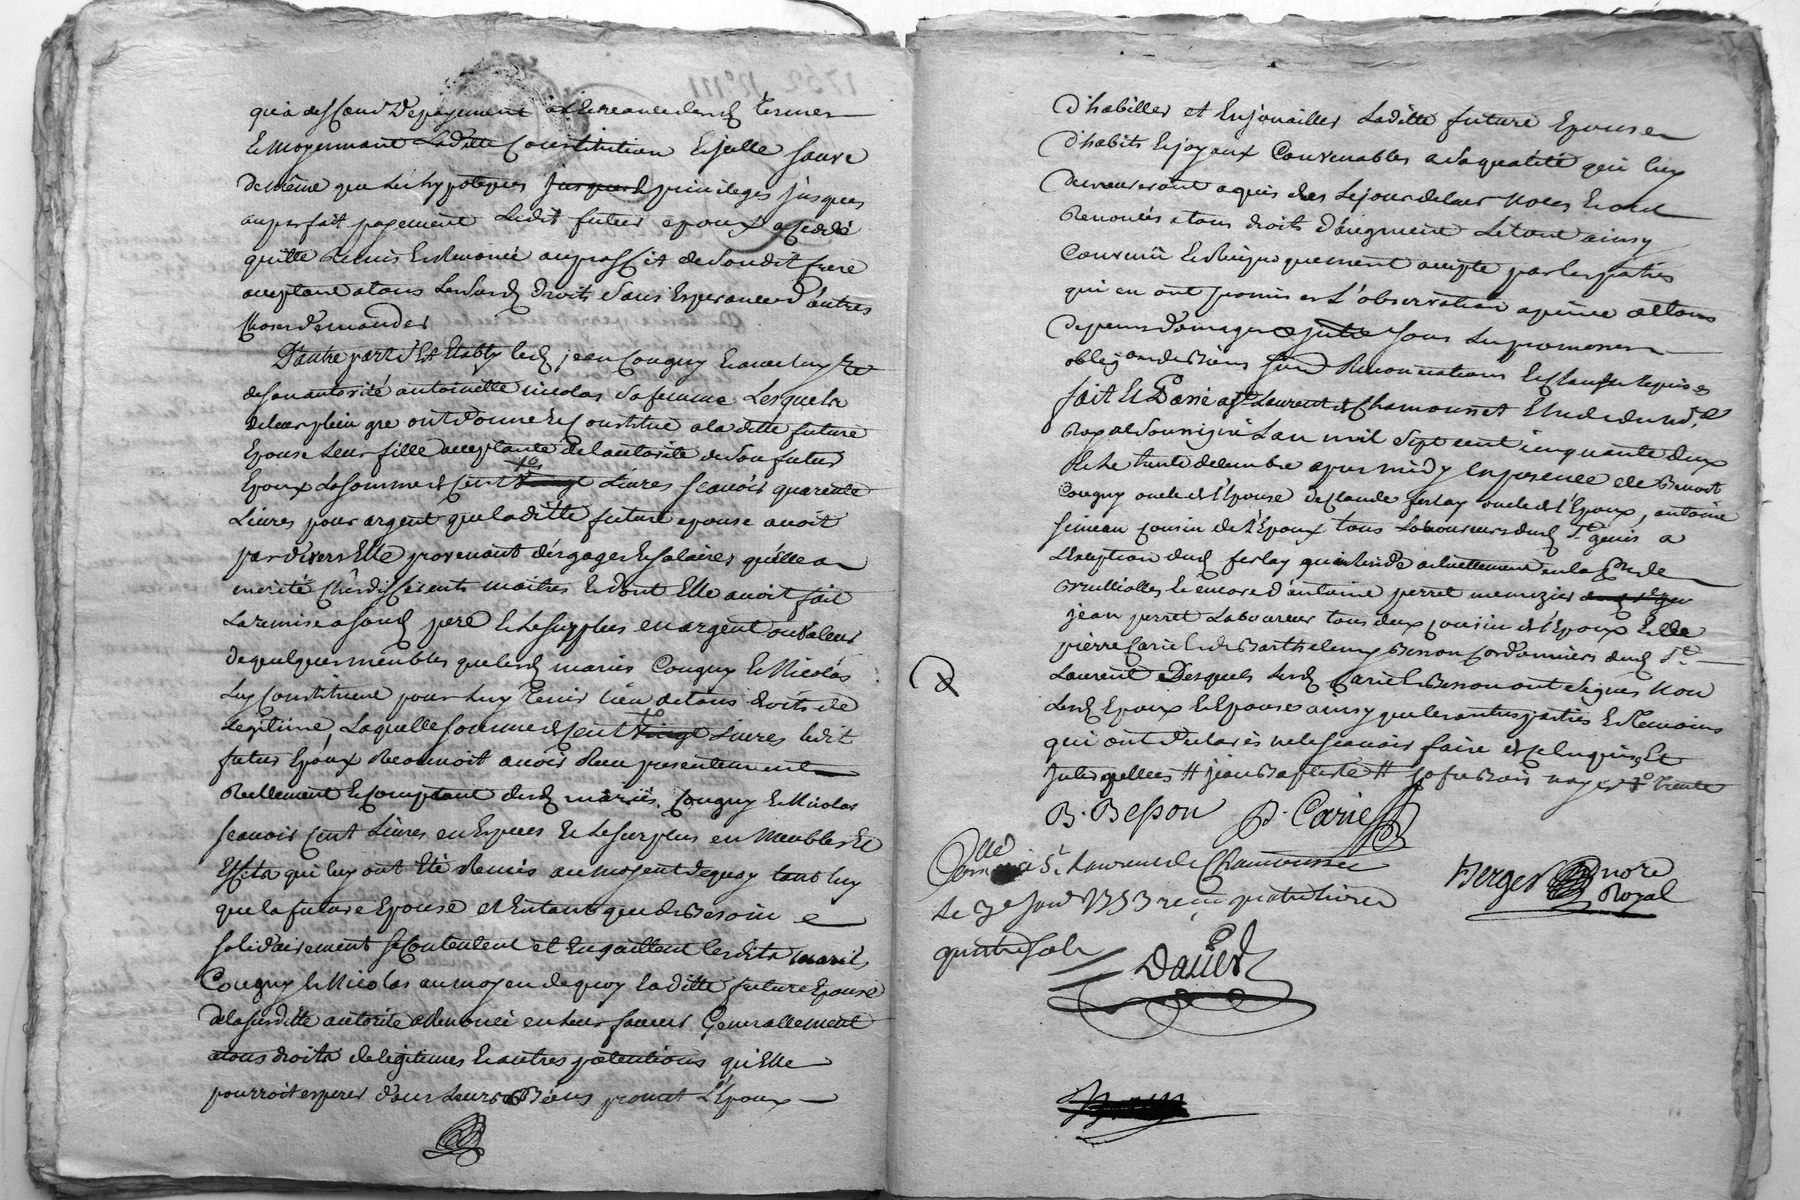 qu'a deffaut de payement desd termes
et moyennant laditte Constitution
de même que les hypoteques jusques privileges jusques
au parfait payement ledit futur epoux a cedé
quitte Remis et Renoncé au proffit de son dit frere
acceptant a tous lesusd droits sans Esperance d'autres
choses demander
D'autre part s'Est Etably led jean Cougny et avec luy et
de son autorité antoinette nicolas sa femme Lesquels
de leur plein gre ont donné et Constitué a la ditte future
Epouse leur fille acceptante de l'autorité de son futur
Epoux la somme de Cent vingt Livres scavoir quarente
Livres pour argent que la ditte future epouse avoit
par divers Elle provenant des gages et salaires qu'elle a
merité chés differents maitres et dont Elle avoit fait
la remise a sond pere et le surplus en argent ou valeur
de quelques meubles que lesd mariés Cougny et Nicolas
luy Constituent pour luy tenir lieu de tous droits de
legitime, Laquelle somme de Cent vingt Livres ledit
futur Epoux Reconnoit avoir Reçu presentement
Reellement et Comptant desd mariés Cougny et Nicolas
scavoir cent Livres en Especes et le surplus en meubles et
Effets qui luy ont Eté Remis au moyent de quoy tant luy
que la future Epouse et Entant que de Besoin
solidairement se Contentent et En quittent lesdits mariés
Cougny et Nicolas au moyen de quoy la ditte future Epouse
de la susditte autorité a Renoncé en leur faveur Generallement
a tous droits de legitimes et autres pretentions qu'Elle
pourroit esperer dans leurs Biens promet L'Epoux
d'habiller et Enjouailler Laditte future Epouse
d'habits et joyaux Convenables a sa qualité qui luy
demeureront aquis dès le jour de leur Noces
Renoncés a tous droits d'augment Le tout ainsy
Convenü et Reciproquement accepté par les parties
qui en ont promis et L'observation a peine de tous
depens domages sous les promesses
oblig.on de Biens sous Renonciations et clauses requises
fait et Passé a St Laurent de Chamousset Etude du nore
Royal soussigné L'an mil sept cent cinquante deux
et le trente decembre apres midy en presence de Benoit
Cougny oncle de l'Epouse de Claude ferlay oncle de l'Epoux, antoine
simean cousin de l'Epoux tous Laboureurs dud St genis a
L'exeption dud ferlay qui reside actuellement en la Psse de
Brullioles et encore d'antoine perret menuizier
jean perret Laboureur tous deux cousin de l'Epoux et de
pierre Carie et de Barthelemy Besson Cordonniers dud St
Laurent Desquels lesd Carie et Besson ont signés Non
lesd Epoux et Epouse ainsy que les autres parties et temoins
qui ont declarés ne le scavoir faire de ce Enquis Et
Interpellees # jean Baptiste #
B. Besson P. Carie
Con.llé a St Laurent de Chamousset
le 3e janv 1753 reçu quatre livres
quatre sols
Berger nore
Royal